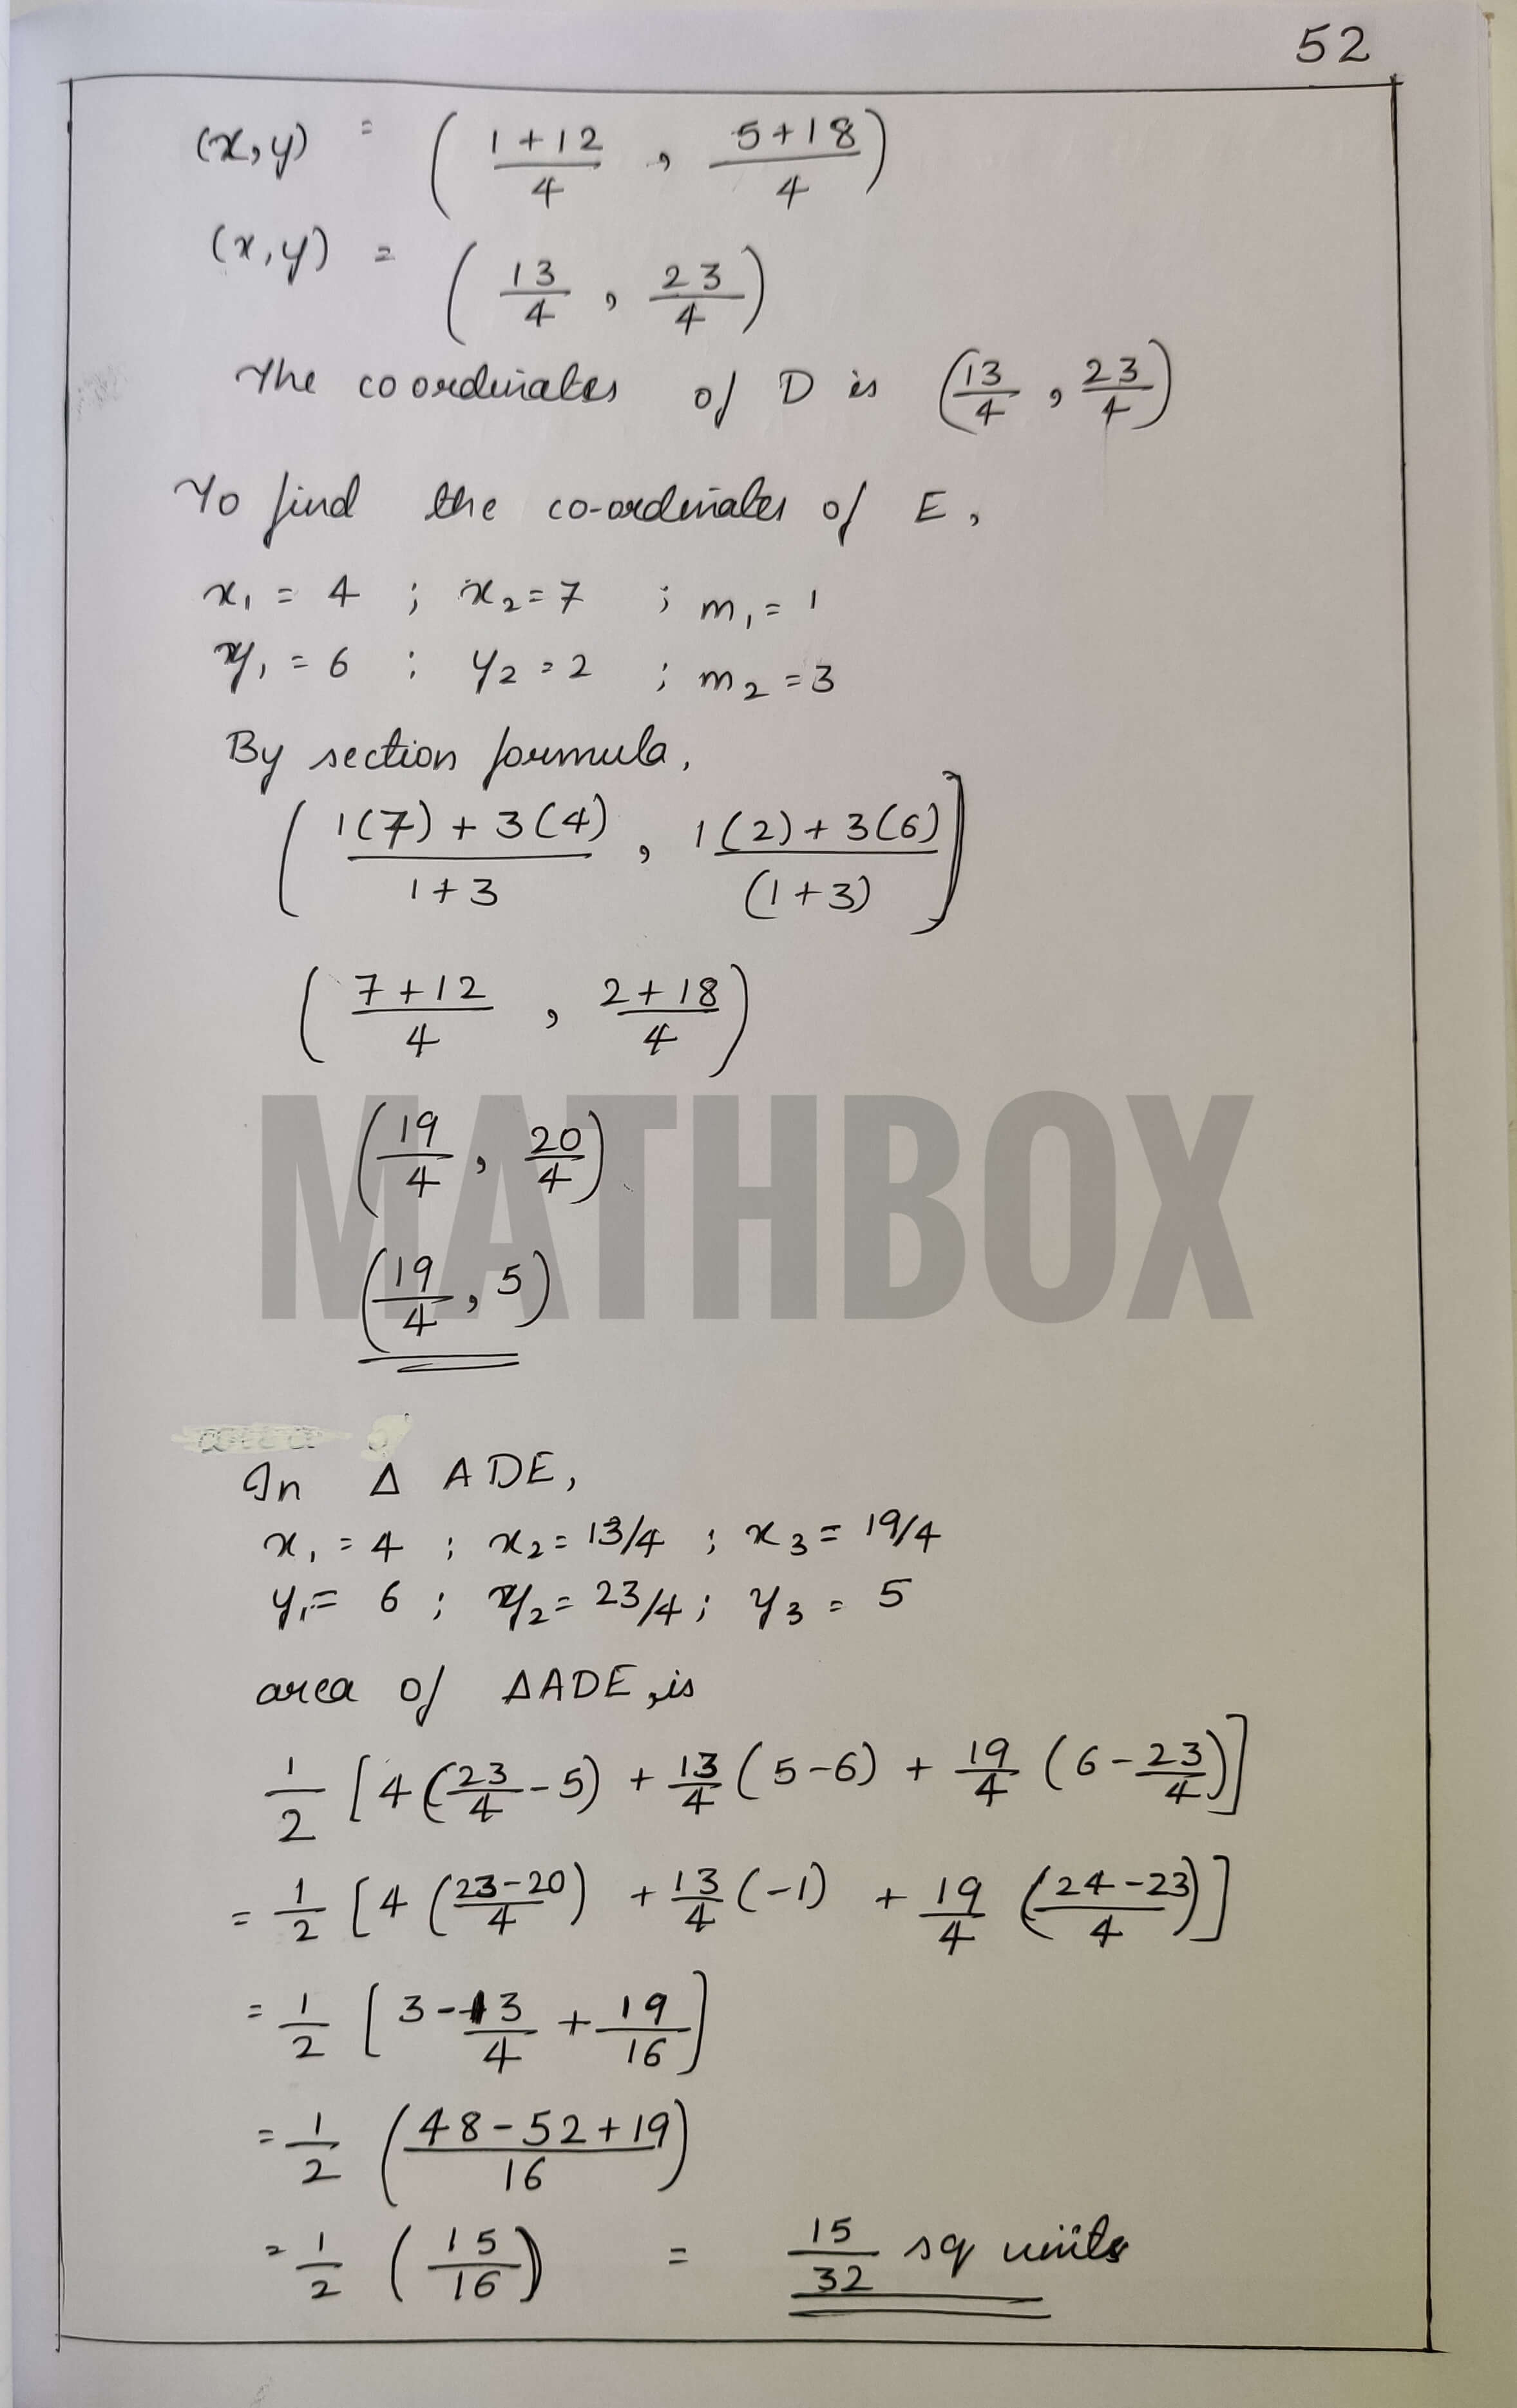 52
(x,y) = ( (1+12)/4 , (5+18)/4 )
(x,y) = ( 13/4 , 23/4 )
The coordinates of D is ( 13/4 , 23/4 )
To find the co-ordinates of E,
x₁ = 4 ; x₂ = 7 ; m₁ = 1
y₁ = 6 ; y₂ = 2 ; m₂ = 3
By section formula,
( (1(7) + 3(4))/(1+3) , (1(2) + 3(6))/(1+3) ]
( (7+12)/4 , (2+18)/4 )
( 19/4 , 20/4 )
MATHBOX
( 19/4 , 5 )
In Δ ADE,
x₁ = 4 ; x₂ = 13/4 ; x₃ = 19/4
y₁ = 6 ; y₂ = 23/4 ; y₃ = 5
area of ΔADE, is
1/2 [ 4 ( 23/4 - 5 ) + 13/4 ( 5-6 ) + 19/4 ( 6 - 23/4 ) ]
= 1/2 [ 4 ( (23-20)/4 ) + 13/4 (-1) + 19/4 ( (24-23)/4 ) ]
= 1/2 [ 3 - 13/4 + 19/16 ]
= 1/2 ( (48-52+19)/16 )
= 1/2 ( 15/16 ) = 15/32 sq units